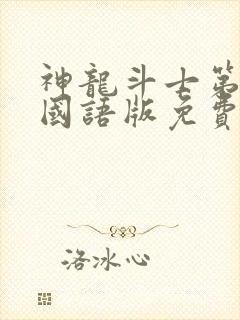 神龍斗士第
國語版免費
洛冰心